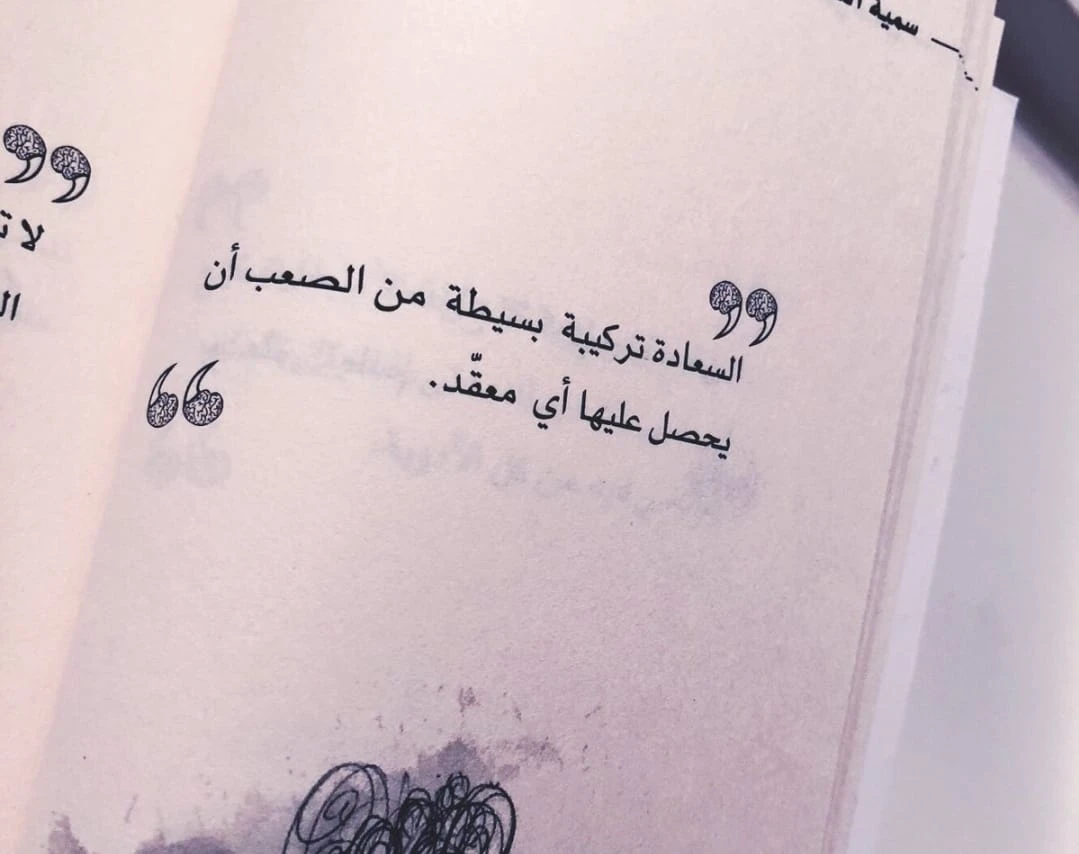 سمية
السعادة تركيبة بسيطة من الصعب أن
يحصل عليها أي معقّد.